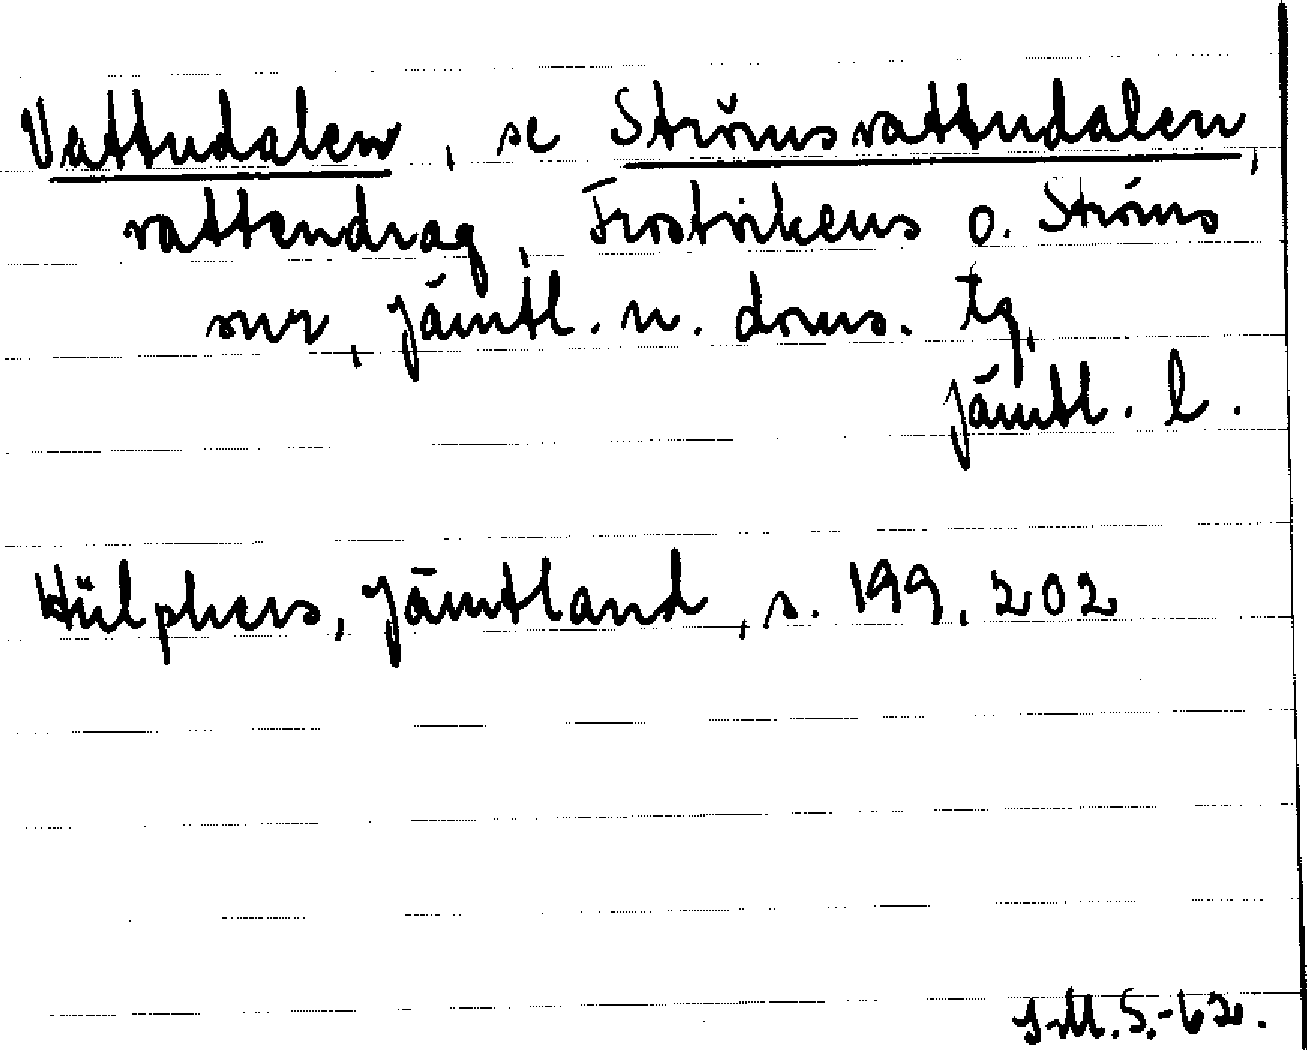 Vattudalen, se Ströms vattudalen,
vattendrag, Frostvikens o. Ströms
snr, Jämtl. n. doms. tg,
Jämtl. l.
Hülphers, Jämtland, s. 199, 202